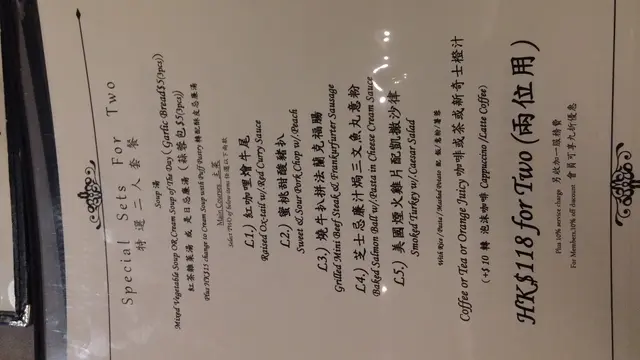 Special Sets For Two
特選二人套餐
Soup 湯
Mixed Vegetable Soup OR Cream Soup of The Day (Garlic Bread $5(3pcs))
紅菜雜菜湯 或 是日忌廉湯 (蒜蓉包 $5(3pcs))
Plus HK$15 change to Cream Soup with Puff Pastry 轉配酥皮忌廉湯
Main Courses 主菜
Select TWO of below items 任選以下兩款
L1.) 紅咖哩燴牛尾
Raised Ox-tail w/Red Curry Sauce
L2.) 蜜桃甜酸豬扒
Sweet & Sour Pork Chop w/Peach
L3.) 燒牛扒拼法蘭克福腸
Grilled Mini Beef Steak & Frankurfurter Sausage
L4.) 芝士忌廉汁焗三文魚丸意粉
Baked Salmon Ball w/Pasta in Cheese Cream Sauce
L5.) 美國煙火雞片配凱撒沙律
Smoked Turkey w/Caesar Salad
With Rice / Pasta / Mashed Potato 配 飯/意粉/薯蓉
Coffee or Tea or Orange Juicy 咖啡或茶或新奇士橙汁
(+$10 轉 泡沫咖啡 Cappuccino (Latte Coffee)
HK$118 for Two (兩位用)
Plus 10% service charge 另收加一服務費
For Members,10% off discount 會員可享九折優惠